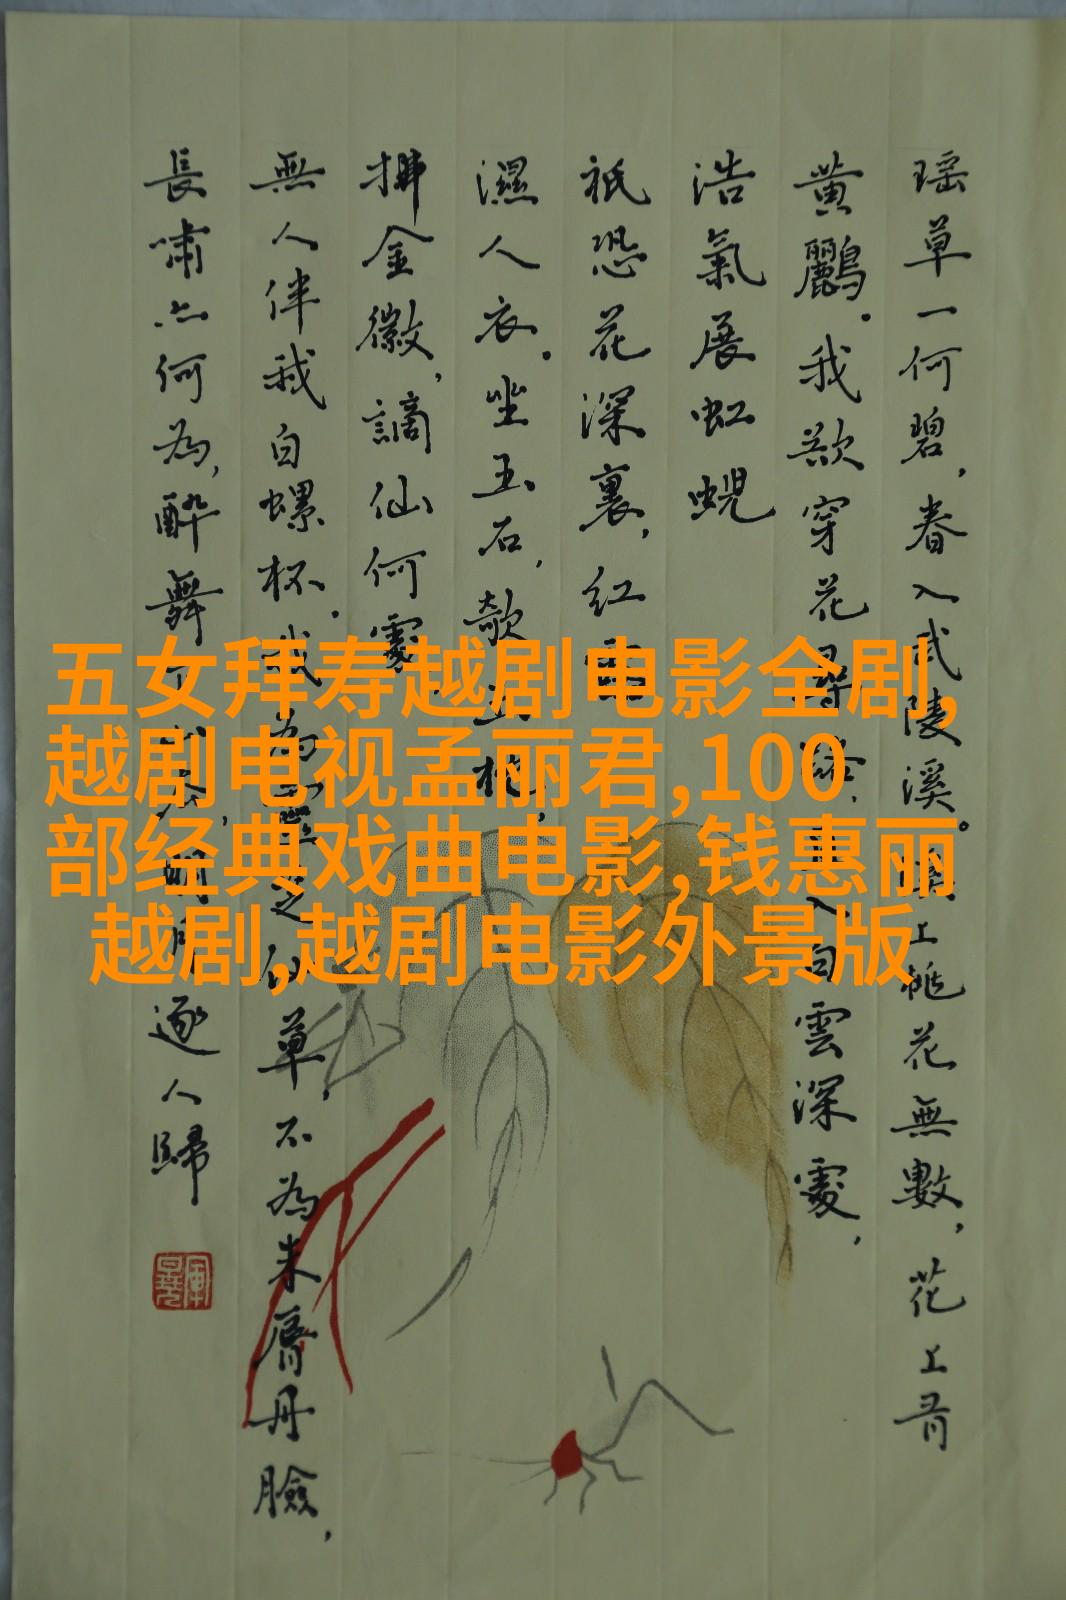 五女拜寿越剧电影全剧,
越剧电视孟丽君,100
部经典戏曲电影,钱惠丽
越剧,越剧电影外景版
瑶草一何碧，春入武陵溪。溪上桃花無數，花上有
黄鸝。我欲穿花尋路，入白雲深處，
浩氣展虹蜺
祇恐花深裏，紅露
濕人衣。坐玉石，欹玉枕，
拂金徽，謫仙何處，
無人伴我白螺杯。我為靈芝仙草，不為朱唇丹臉，
長嘯亦何為，醉舞下山去，明月逐人歸